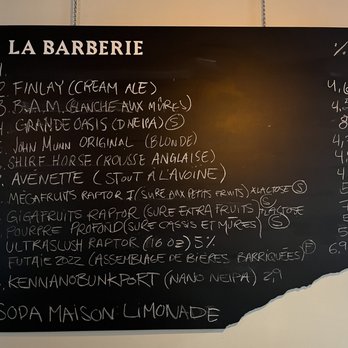 LA BARBERIE %
1.
2 FINLAY (CREAM ALE) 4,6
3. B.A.M. (BLANCHE AUX MÛRES)
GRANDE OASIS (DNEIPA) S
JOHN MUNN ORIGINAL (BLONDE)
SHIRE HORSE (ROUSSE ANGLAISE)
AVENETTE (STOUT À L'AVOINE)
MÉGAFRUITS RAPTOR I (SURE AUX PETITS FRUITS) LACTOSE S
GIGAFRUITS RAPTOR (SURE EXTRA FRUITS) LACTOSE
POURPRE PROFOND (SURE CASSIS ET MÛRES) S
ULTRASLUSH RAPTOR (16 OZ) 5%
FUTAIE 2022 (ASSEMBLAGE DE BIÈRES BARRIQUÉES) F 6.9
KENNANOBUNKPORT (NANO NEIPA) 2,9
SODA MAISON LIMONADE